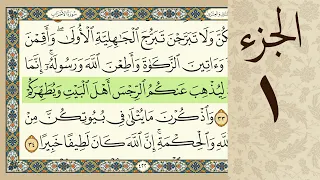 الجزء
١
كُنَّ وَلَا تَبَرَّجْنَ تَبَرُّجَ الْجَٰهِلِيَّةِ الْأُولَىٰ وَأَقِمْنَ
وَءَاتِينَ الزَّكَوٰةَ وَأَطِعْنَ اللَّهَ وَرَسُولَهُۥ إِنَّمَا
لِيُذْهِبَ عَنكُمُ الرِّجْسَ أَهْلَ الْبَيْتِ وَيُطَهِّرَكُمْ
٣٣ وَاذْكُرْنَ مَا يُتْلَىٰ فِي بُيُوتِكُنَّ مِنْ
للَّهِ وَالْحِكْمَةِ إِنَّ اللَّهَ كَانَ لَطِيفًا خَبِيرًا ٣٤
٤٢٢